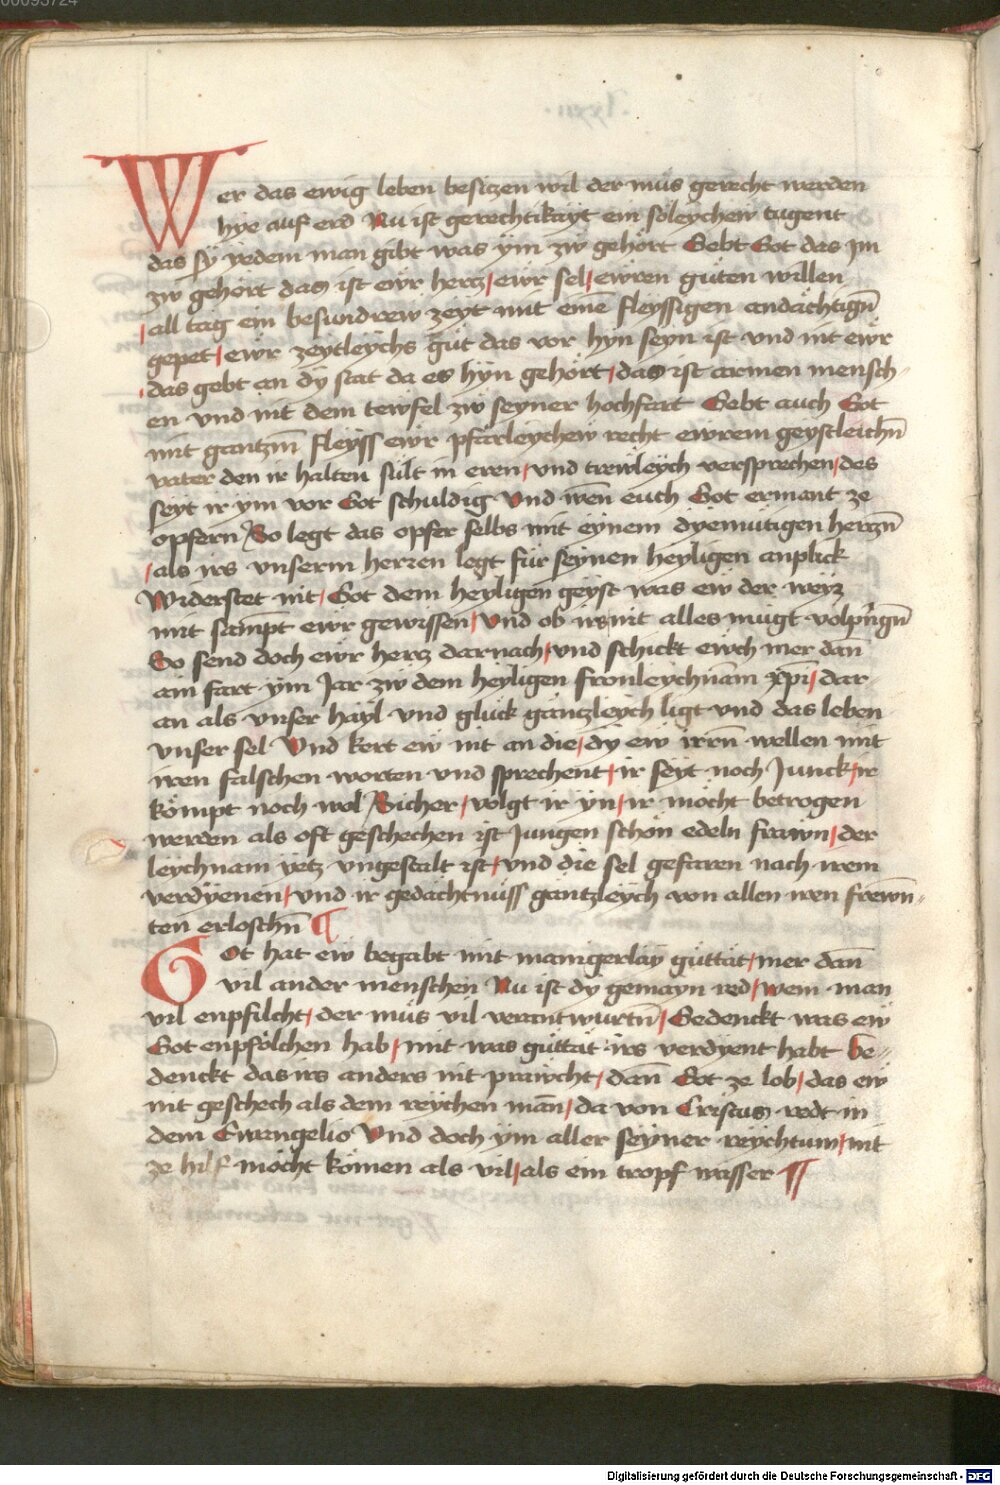 00095724
Wer das ewig leben besitzen wil der müs gerecht werden
hye auf erd Nu ist gerechtikayt ein söleychew tugent
das sy yedem man gibt was ym zw gehört Gebt Got das Im
zw gehört das ist ewr hertz / ewr sel / ewren güten willen
/ all tag ein besundrew zeyt mit eine fleyssigen andächtigñ
gepet / ewr zeytleychs güt das vor hyn seyn ist vnd nit ewr
/ das gebt an dy stat da es hyn gehört / das ist armen mensch-
en vnd nit dem tewfel zw seyner hochfart Gebt auch Got
mit gantzm̄ fleyss ewr pfarleychew recht ewrem geystleichñ
vater den ir halten sült in eren / vnd trewleych versprechen / des
seyt ir ym vor Got schuldig Vnd wen̄ euch Got ermant ze
opfern So legt das opfer selbs mit eynem dyemütigen hertzñ
/ als irs vnserm herren legt für seynen heyligen anplick
Widerstet nit / Got dem heyligen geyst was ew der weyz
mit sampt ewr gewissen / Vnd ob irs nit alles mügt volpr̄ngñ
So send doch ewr hertz darnach / vnd schickt ewch mer dan̄
ain fart ym Jar zw dem heyligen fronleychnam xp̄i / dar
an als vnser hayl vnd glück gäntzleych ligt vnd das leben
vnser sel Vnd kert ew nit an die / dy ew irrñ wellen mit
iren falschen worten vnd sprechent / ir seyt noch Junck / ir
kömpt noch wol Sicher / volgt ir yn / ir möcht betrogen
werden als oft geschechen ist Jungen schön edeln frawn̄ / der
leychnam yetz vngestalt ist / vnd die sel gefaren nach irem
verdyenen / vnd ir gedächtnüss gäntzleych von allen iren frewn̄-
ten erloschñ ¶
Got hat ew begabt mit manigerlay güttät / mer dan̄
vil ander menschen Nu ist dy gemayn red / wem man
vil enpfilcht / der müs vil verantwurtñ / Gedenckt was ew
Got enpfölchen hab / mit was güttät irs verdyent habt be-
denckt das irs anders nit prawcht / dan̄ Got ze lob / das ew
nit geschech als dem reychen man̄ / da von Cristus redt in
dem Ewangelio Vnd doch ym aller seyner reychtum / nit
ze hilf möcht kömen als vil / als ein tropf wasser ¶
Digitalisierung gefördert durch die Deutsche Forschungsgemeinschaft - DFG